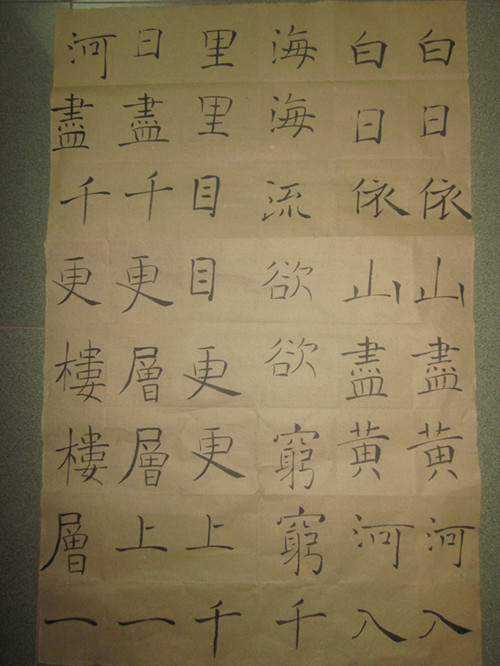 白日依山盡黄河入
白日依山盡黄河入
海海流欲欲窮窮千
里里目目更更上千
日盡千更層層上一
河盡千更樓樓層一